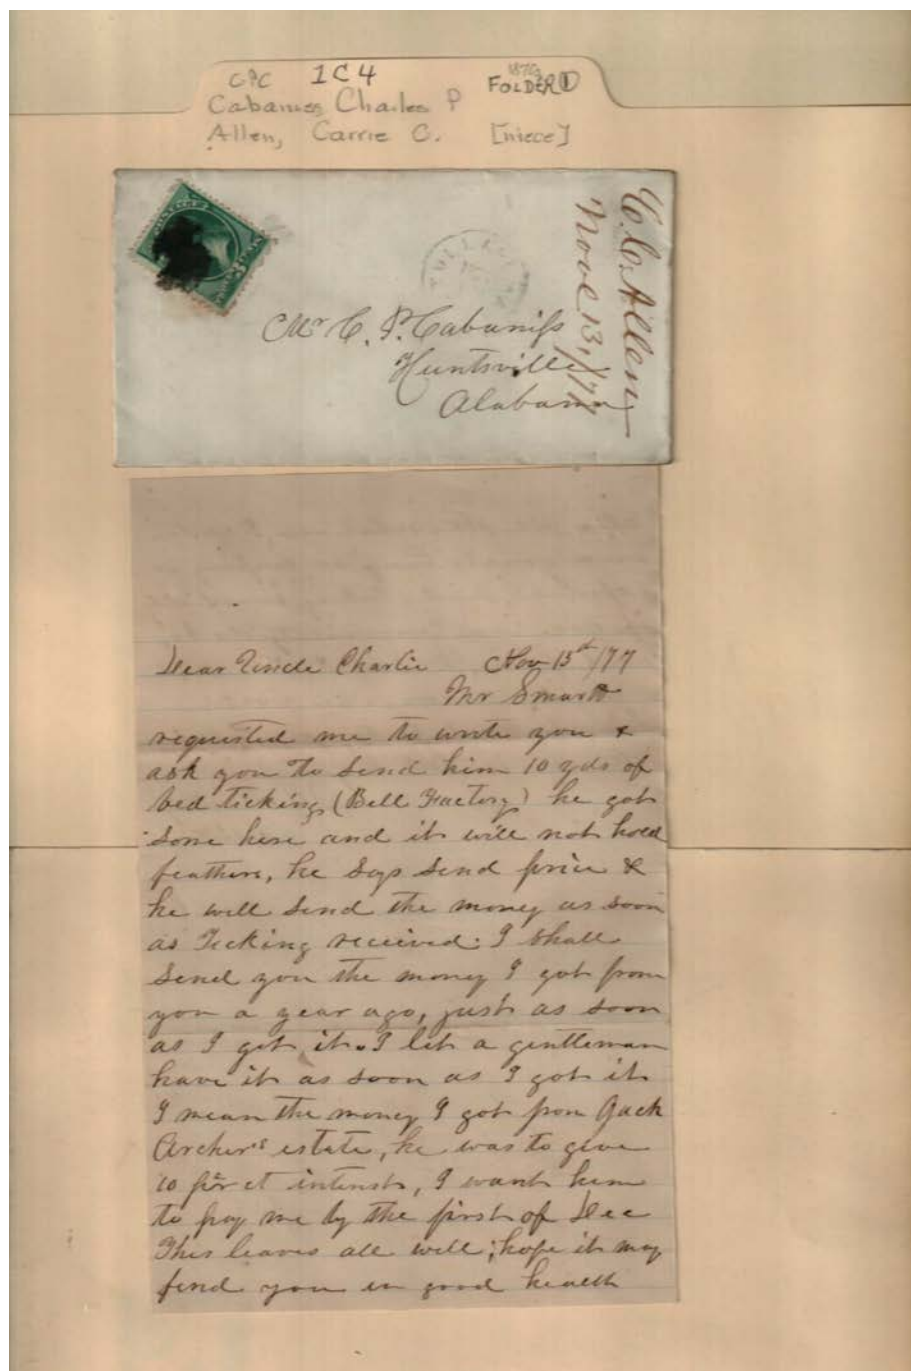 CPC 1C4 1870s
FOLDER 1
Cabaniss, Charles P
Allen, Carrie C. [niece]
C. C. Allen
Nove 13, /77
Mr C. P. Cabaniss
Huntsville
Alabama
Dear Uncle Charlie Nov 13th/77
Mr Smartt
requested me to write you &
ask you to send him 10 yds of
bed ticking (Bell Factory) he got
some here and it will not hold
feathers, he says send price &
he will send the money as soon
as Ticking received. I shall
send you the money I got from
you a year ago, just as soon
as I get it. I let a gentleman
have it as soon as I got it
I mean the money I got from Jack
Archer's estate, he was to give
10 per ct interest, I want him
to pay me by the first of Dec
This leaves all well; hope it may
find you in good health